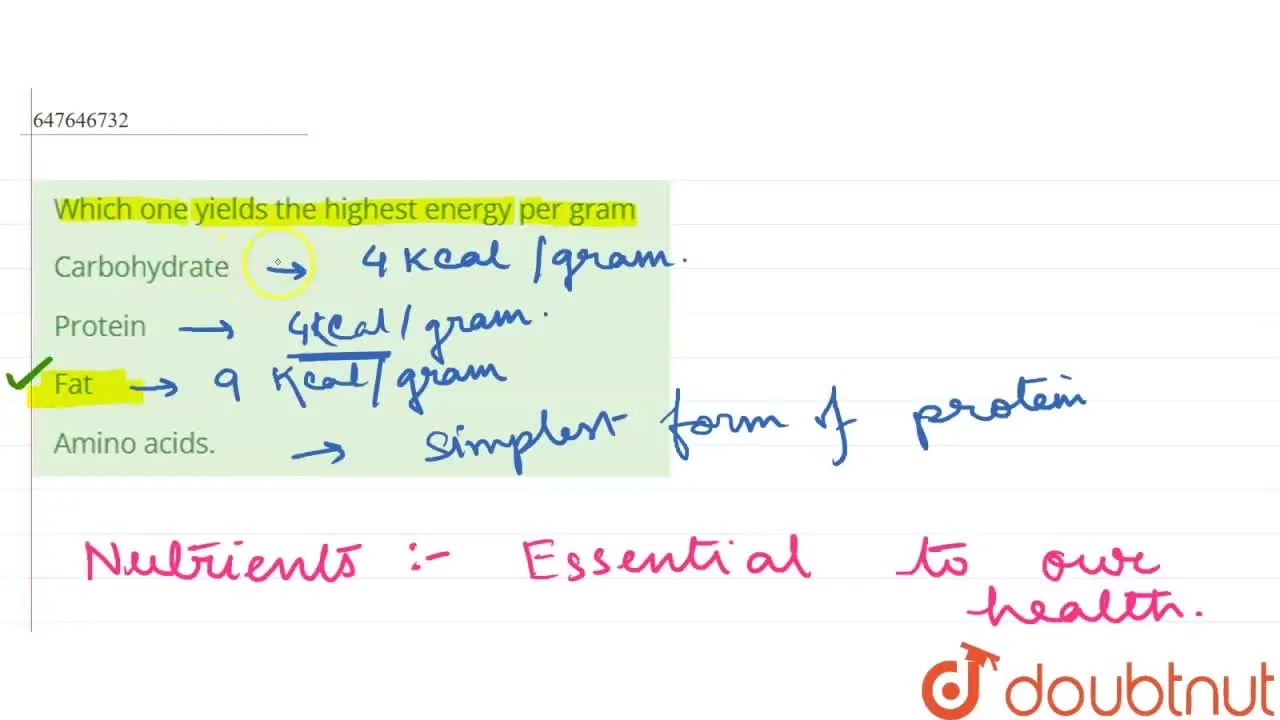 647646732
Which one yields the highest energy per gram
Carbohydrate → 4 Kcal / gram.
Protein → 4Kcal / gram.
✓ Fat → 9 Kcal / gram
Amino acids. → Simplest form of protein
Nutrients :- Essential to our
health.
doubtnut